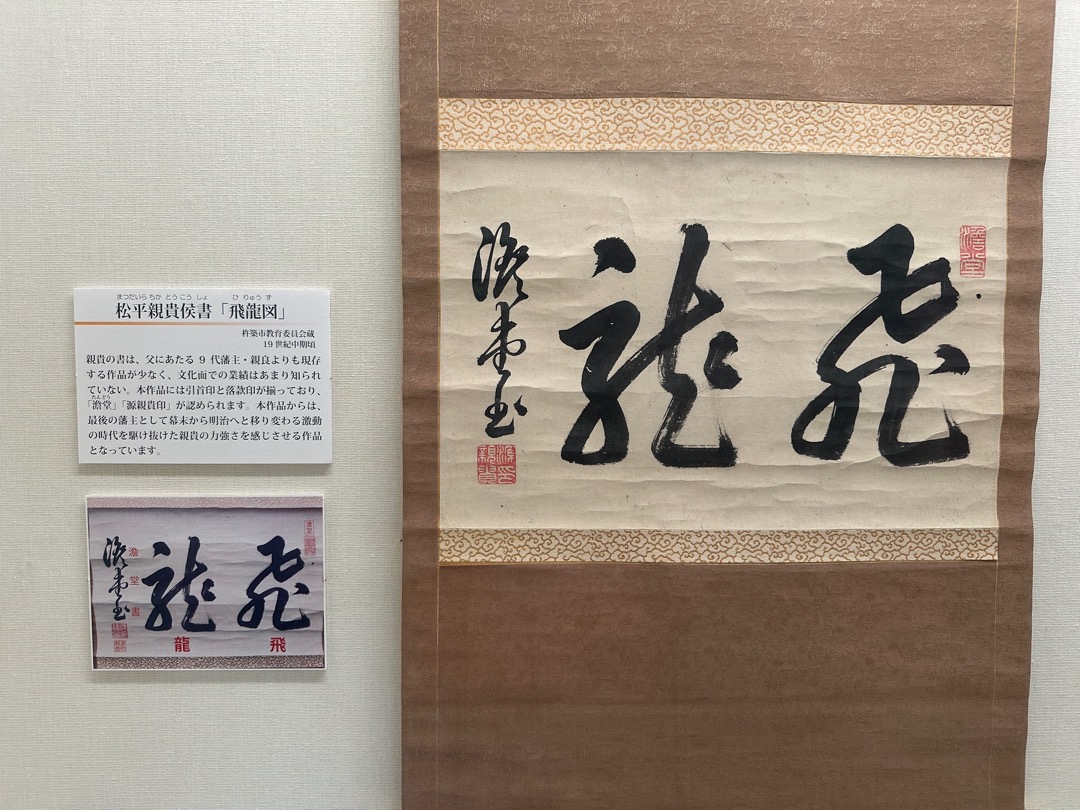 まつだいら ちか とう こう しょ ひ りゅう ず
松平親貴侯書「飛龍図」
杵築市教育委員会蔵
19世紀中期頃
親貴の書は、父にあたる 9 代藩主・親良よりも現存
する作品が少なく、文化面での業績はあまり知られ
ていない。本作品には引首印と落款印が揃っており、
たんどう
「澹堂」「源親貴印」が認められます。本作品からは、
最後の藩主として幕末から明治へと移り変わる激動
の時代を駆け抜けた親貴の力強さを感じさせる作品
となっています。
飛龍
澹堂書
澹堂
源親貴印
飛龍
澹堂書
飛
龍
澹
堂
書
澹堂